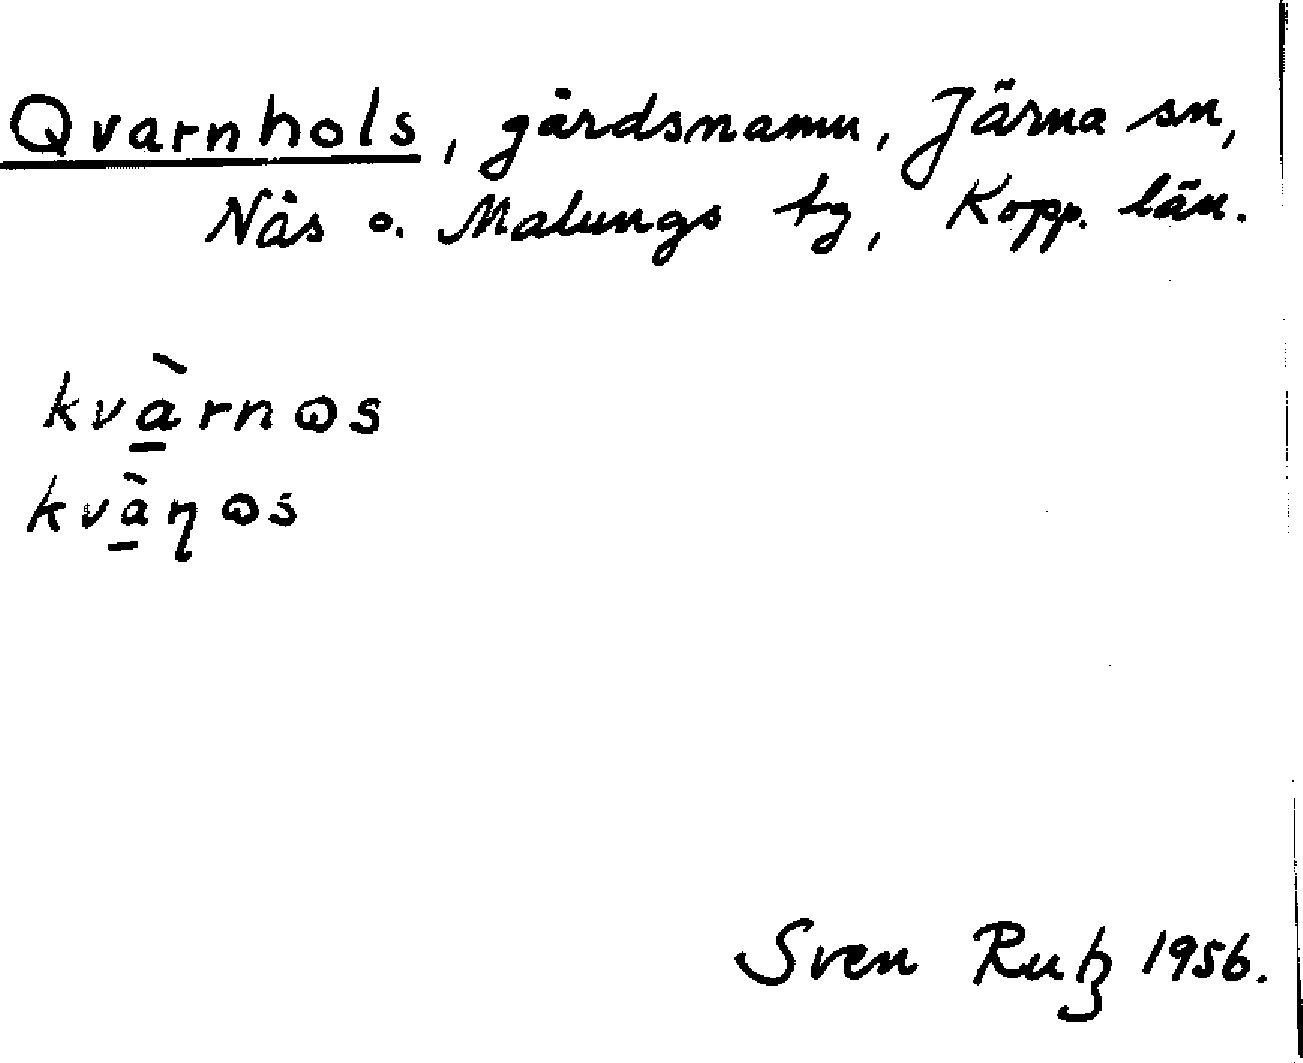 Qvarnhols, gårdsnamn, Järna sn,
Nås o. Malungs tg, Kopp. län.
kvà̱rnɷs
kvà̱ɳɷs
Sven Rutz 1956.